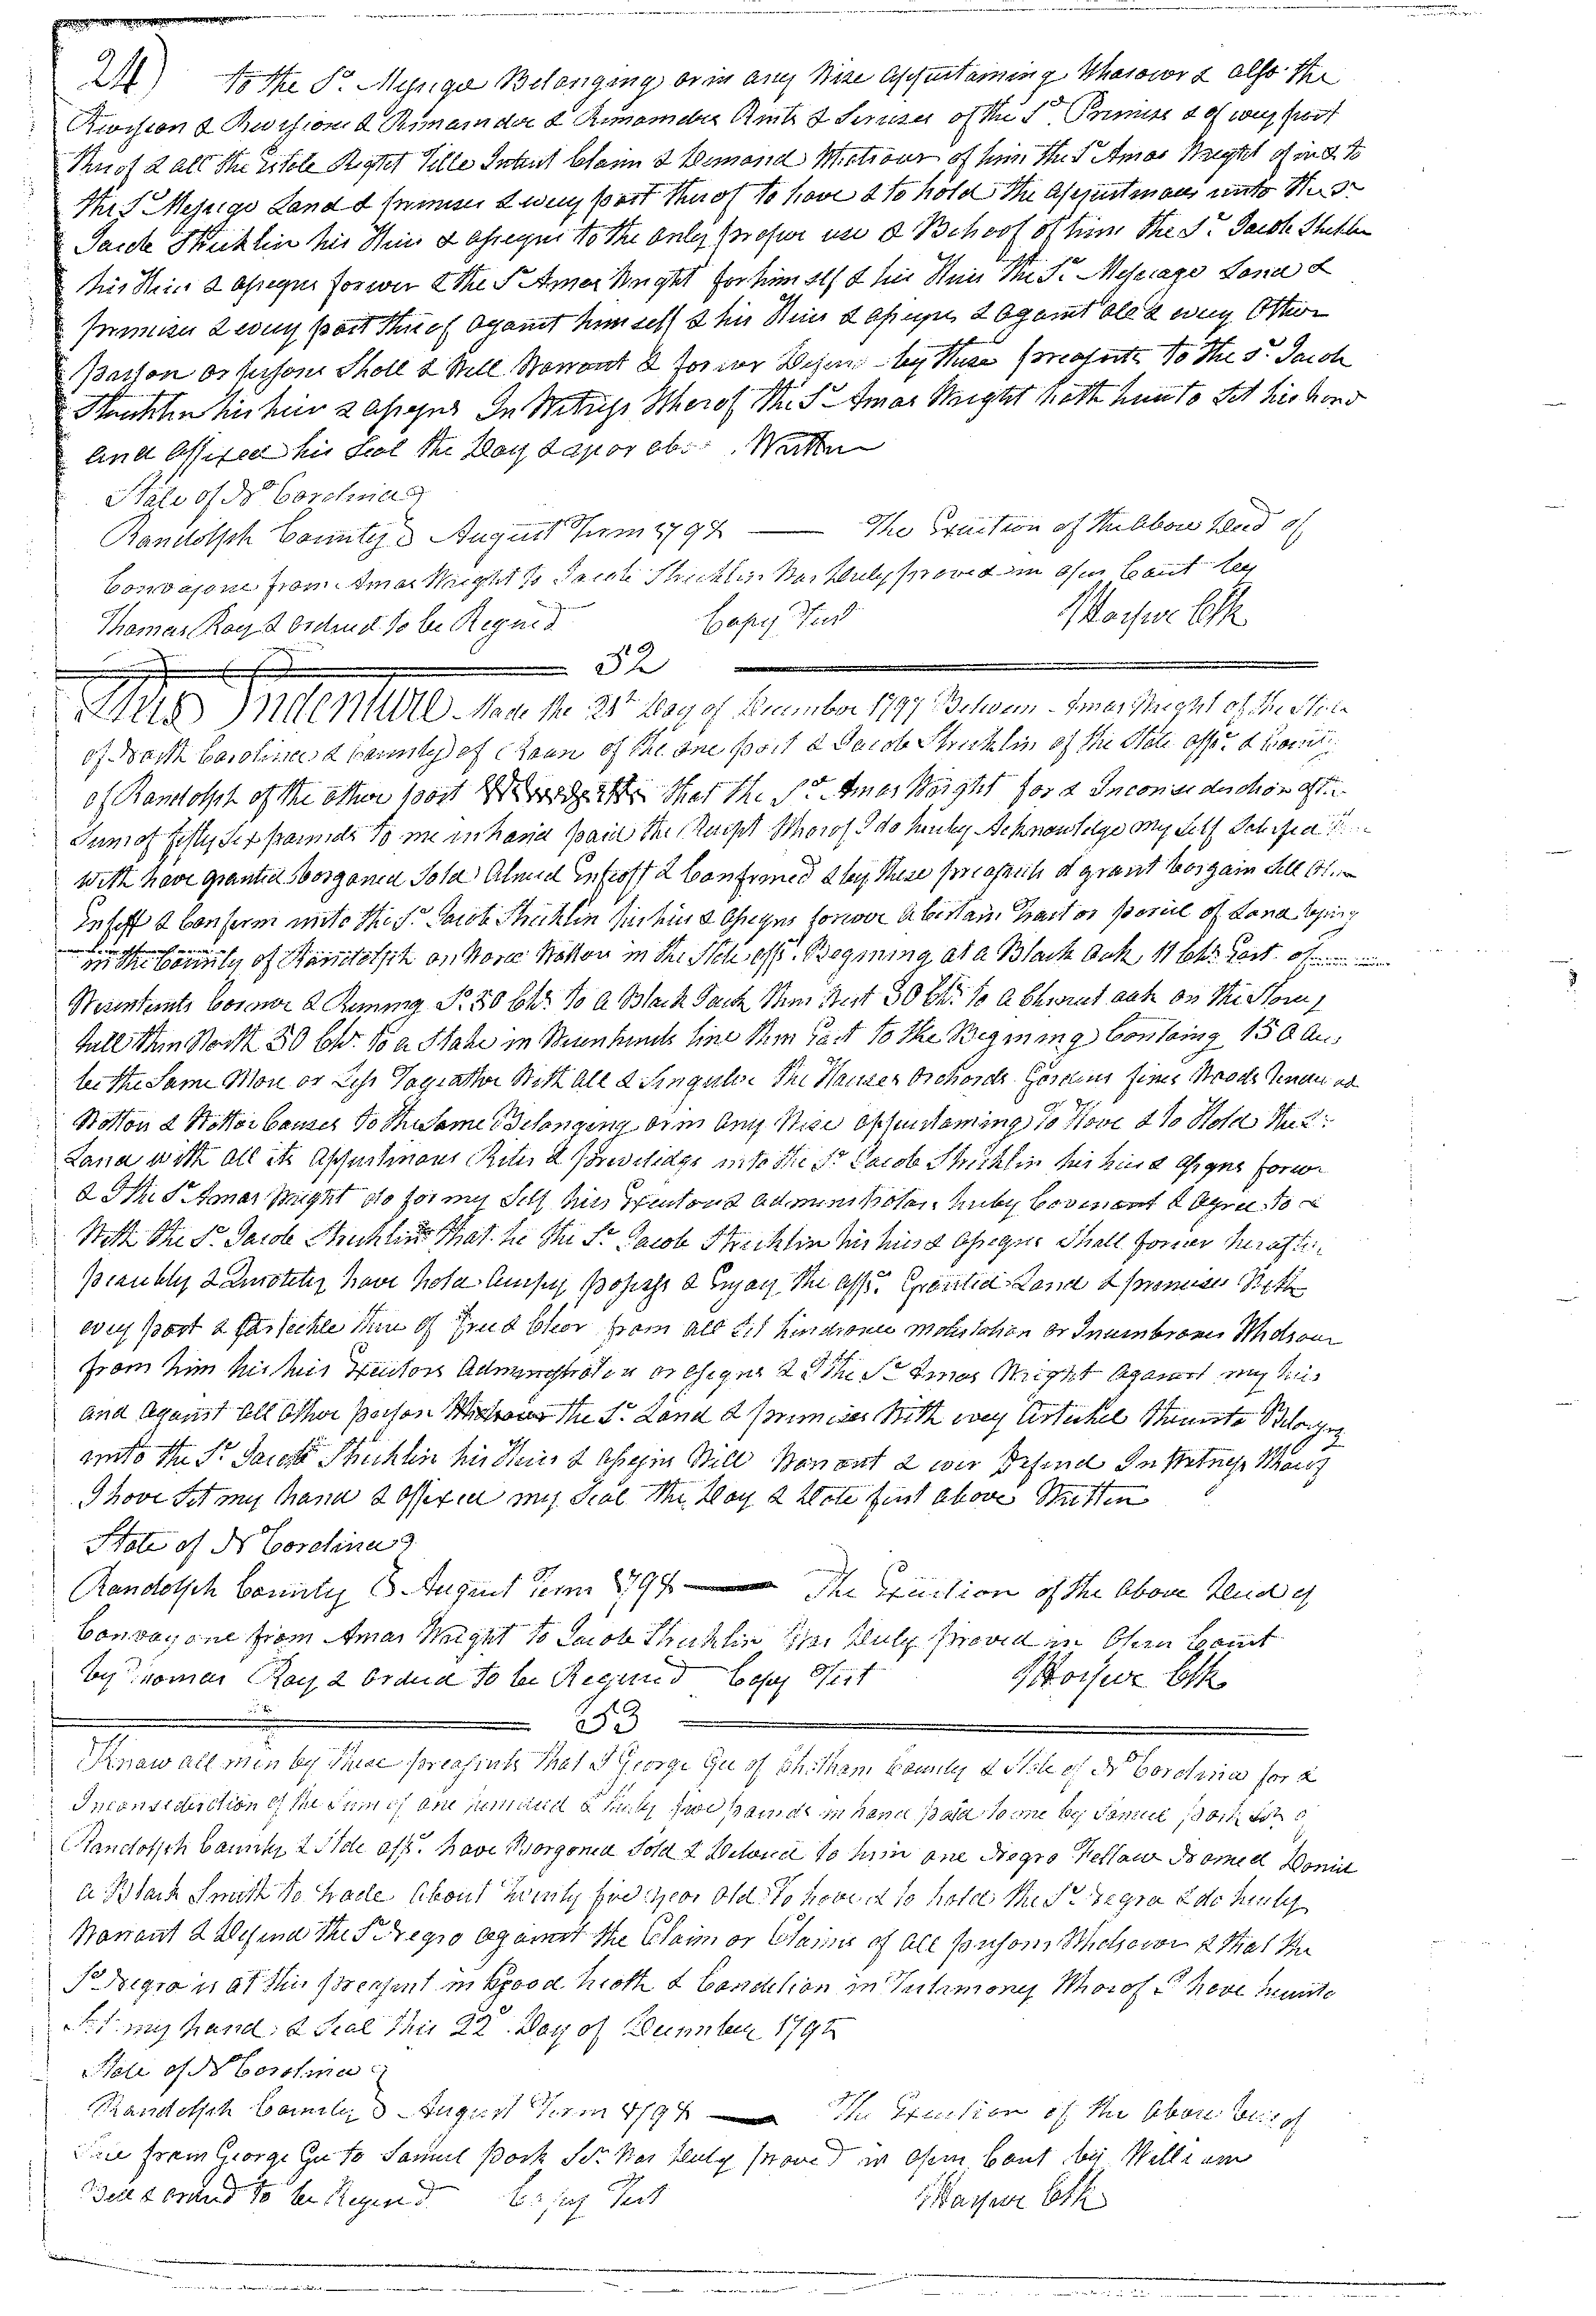 24) to the Sd. Messuge Belonging or in any Wise Appurtaining Whasoever & also the
Revission & Revisions & Remainder & Remainders Rents & Servises of the Sd. Primise & of every part
Thereof & all the Estate Right Title Intrust Claim & Demand Whatsour of him the Sd Amos Wright of in & to
the Sd Messuge Land & primises & every part thereof to have & to hold the Appurtinaces unto the Sd
Jacob Stricklin his Heirs & Assegns to the only proper use & Behoof of him the Sd. Jacob Stricklin
his Heirs & Assegns forever & the Sd Amos Wright for him self & his Heirs the Sd. Messuage Land &
primises & every part thereof against himself & his Heirs & Assigns & against all & every Other
Parson or persons Shall & Will Warrant & forever Defend by these preasents to the Sd. Jacob
Stricklin his heirs & assegns In Witness Wherof the Sd Amos Wright hath hereunto Set his hand
and Affixed his Seal the Day & abov Written
State of No Carolina
Randolph County August Term 1798 The Execution of the Above Deed of
Convayane from Amos Wright to Jacob Stricklin Was Duly proved in open Court by
Thomas Ray & ordered to be Regined Copy Test Harper Clk
52
This Indenture Made the 21st Day of December 1797 Between Amos Wright of the State
of North Carolina & County of Roan of the one part & Jacob Stricklin of the State affsd. & County
of Randolph of the other part Witnesseth that the Sd. Amos Wright for & Inconsederation of the
Sum of fifty Six pounds to me in hand paid the Receipt Wherof I do hereby Acknowledge my Self Satisfied
with have granted Borganed Sold Alined Infeoff & Confirmed & by these preasents do grant borgain Sell Alien
Infeff & Confirm unto the Sd. Jacob Stricklin his heirs & Assegns forever A Certain Tract or parcel of Land Lying
in the County of Randolph on Watters in the State affsd. Begining at a Black Oak 11 Chs. East of
Corner & Runing S. 50 Chs. to a Black Jack then West 30 Chs. to a Chesnut oak on the Stony
hill then North 50 Chs. to a Stake in line then East to the Begining Containg 150 Acrs
be the Same More or Less Togeather With All & Singuler the Houses Orchords Gardens fines Woods
Watters & Watter Causes to the Same Belonging or in Any Wise appurtaining To Have & to Hold the Sd
Land with all its Appurtinans Rites & previlidgs unto the Sd. Jacob Stricklin his heirs & Assigns forever
& I the Sd Amos Wright do for my Self heirs Exeutors & administrators hereby Covenant & Agree to &
With the Sd. Jacob Stricklin That he the Sd. Jacob Stricklin his heirs & Assegns Shall forever hereafter
peaceably & Quietely have hold Occupy possess & Enjoy the affsd. Granted Land & premises With
every part & partickle there of Free & Clear from all Let hindrance molestation or Incumbrances Whatsour
from him his heirs Executors Admenistrators or assegns & I the Sd Amos Wright Against my heirs
and Against All Other person Whatsour the Sd. Land & premises With every Artickel Thereunto Belonging
unto the Sd. Jacob Stricklin his Heirs & Assegns Will Warrant & ever Defend In Witness Wharof
I have Set my hand & Affixed my Seal the Day & Date first Above Written
State of No Carolina
Randolph County August Term 1798 The Execution of the Above Deed of
Convayane from Amos Wright to Jacob Stricklin Was Duly proved in Open Court
by Thomas Ray & Ordered to be Regined Copy Test Harper Clk
53
Know all men by these preasents that I George Gee of Chatham County & State of No Carolina for &
Inconsederation of the Sum of one hundred & five pounds in hand paid to me by Samuel Park Sr of
Randolph County & State affsd. have Borgoned Sold & Deliverd to him one Negro Fellow Named
a Black Smith to trade About twenty five year Old To have & to hold the Sd Negro & do hereby
Warrant & Defend the Sd Negro against the Claim or Claims of all persons Whatsoever & that the
Sd Negro is at this preasent in Good health & Condition in Testimony Wharof I have hereunto
Set my hand & Seal this 22d Day of December 1795
State of No Carolina
Randolph County August Term 1798 The Execution of the Above Bill of
Sale from George Gee to Samuel Park Sr. Was Duly proved in open Court by William
Bell & ordered to be Regined Copy Test Harper Clk